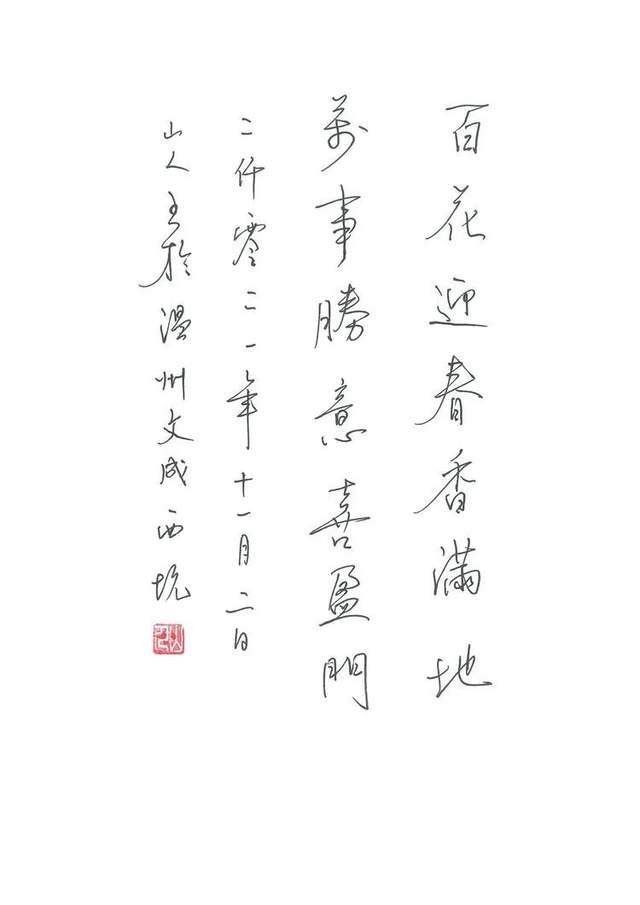 百花迎春香滿地
萬事勝意喜盈門
二仟零二一年十一月二日
山人書於温州文成西坑